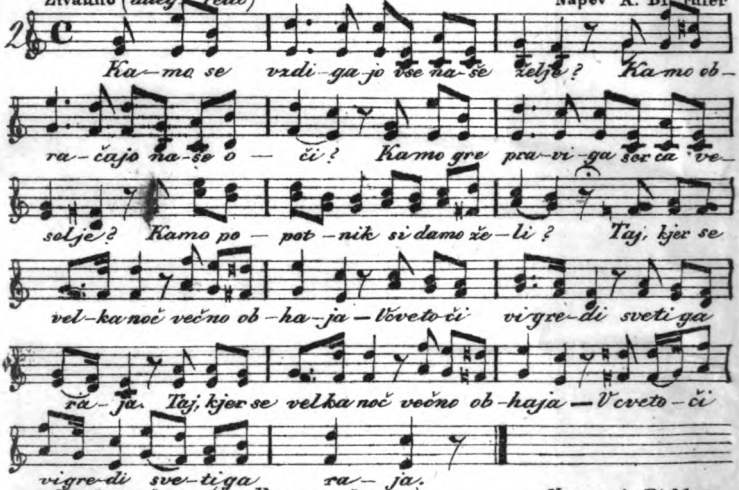 Živahno
Napev A.
2
Ka-mo se vzdi-ga jo vse na-še želje? Ka-mo ob-
ra-čajo na-še o — či? Kamo gre pra-vi-ga serca ve-
selje? Kamo po-pot-nik si damo že-li? Taj, kjer se
vel-ka noč večno ob-ha-ja — V cveto či vi gre-di sveti ga
ra-ja. Taj, kjer se velka noč večno ob-haja — V cveto-či
vi gre-di sve-ti ga ra-ja.